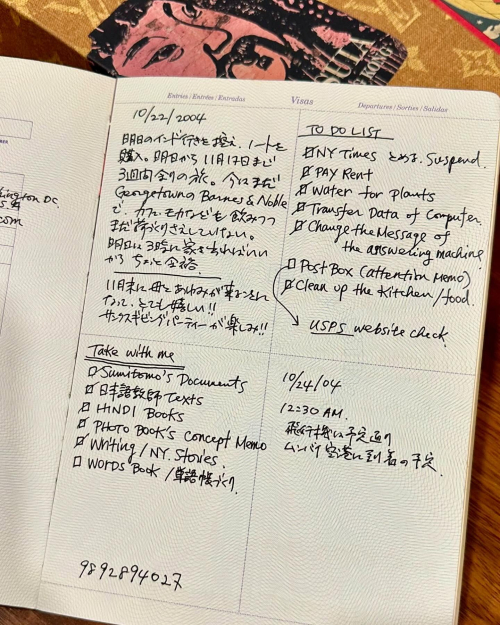 Entries / Entrées / Entradas
Visas
Departures / Sorties / Salidas
10/22/2004
明日のインド行きを控え、ノートを
購入。明日から11月17日まで
3週間余りの旅。今はまだ
GeorgetownのBarnes & Noble
で、カフェモカなども飲みつつ
まだ荷づくりさえしていない。
明日は3時に家を出ればいい
から ちょっと余裕。
11月末に母とあゆみが来ることに
なって、とても嬉しい!!
サンクスギビングパーティーが楽しみ!!
TO DO LIST
NY Times とめる. Suspend.
PAY Rent
Water for Plants
Transfer Data of Computer.
Change the Message of
the answering machine.
Post Box (attention Memo)
Clean up the Kitchen/food.
USPS website check.
Take with me
Sumitomo's Documents
日本語教師 Texts
HINDI Books
PHOTO BOOK'S Concept Memo
Writing / NY. Stories.
WORDS BOOK / 単語帳づくり.
9892894027
10/24/04
12:30 AM.
飛行機は予定通り
ムンバイ空港に到着の予定.
ington DC.
com